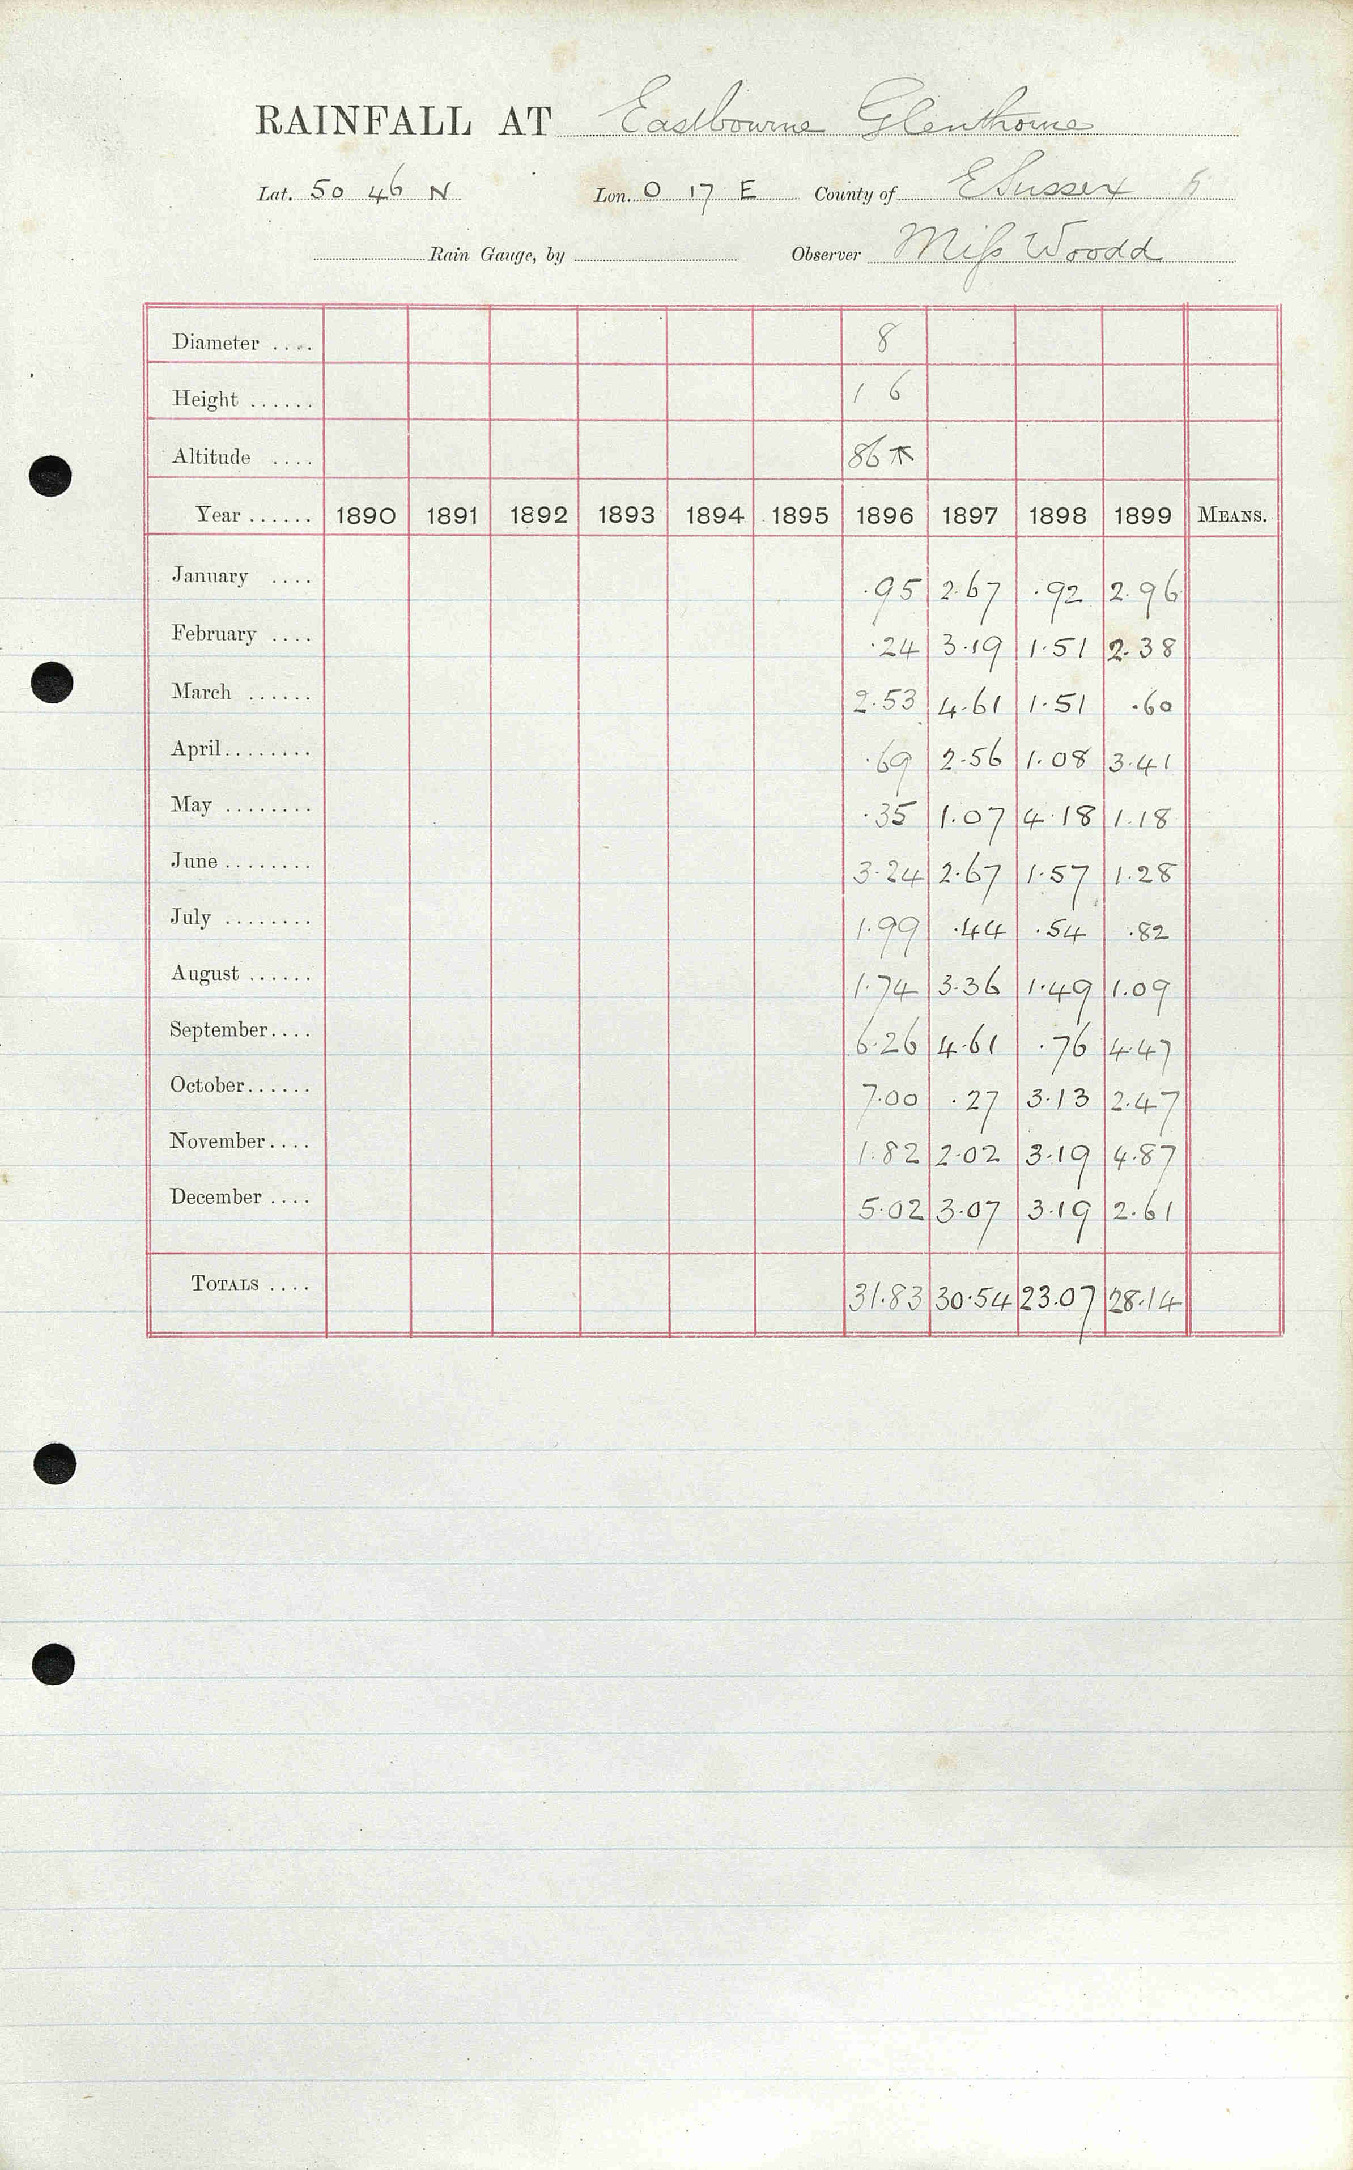 RAINFALL AT Eastbourne Glenthorne
Lat. 50 46 N Lon. 0 17 E County of E Sussex
Rain Gauge, by Observer Miss Woodd
Diameter .... 8
Height ...... 1 6
Altitude .... 86
Year ...... 1890 1891 1892 1893 1894 1895 1896 1897 1898 1899 MEANS.
January .... .95 2.67 .92 2.96
February .... .24 3.19 1.51 2.38
March ...... 2.53 4.61 1.51 .60
April........ .69 2.56 1.08 3.41
May ........ .35 1.07 4.18 1.18
June ........ 3.24 2.67 1.57 1.28
July ........ 1.99 .44 .54 .82
August ...... 1.74 3.36 1.49 1.09
September.... 6.26 4.61 .76 4.47
October...... 7.00 .27 3.13 2.47
November.... 1.82 2.02 3.19 4.87
December .... 5.02 3.07 3.19 2.61
TOTALS .... 31.83 30.54 23.07 28.14